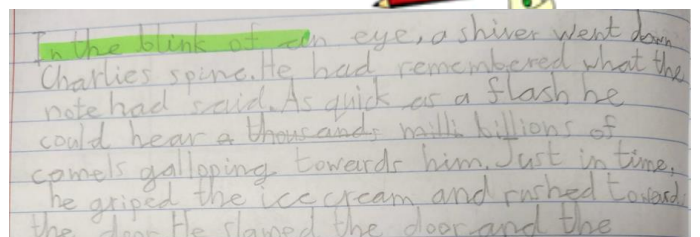 In the blink of an eye, a shiver went down
Charlies spine. He had remembered what the
note had said. As quick as a flash he
could hear a thousands milli billions of
camels galloping towards him. Just in time,
he griped the ice cream and rushed toward
the door. He slamed the door and the